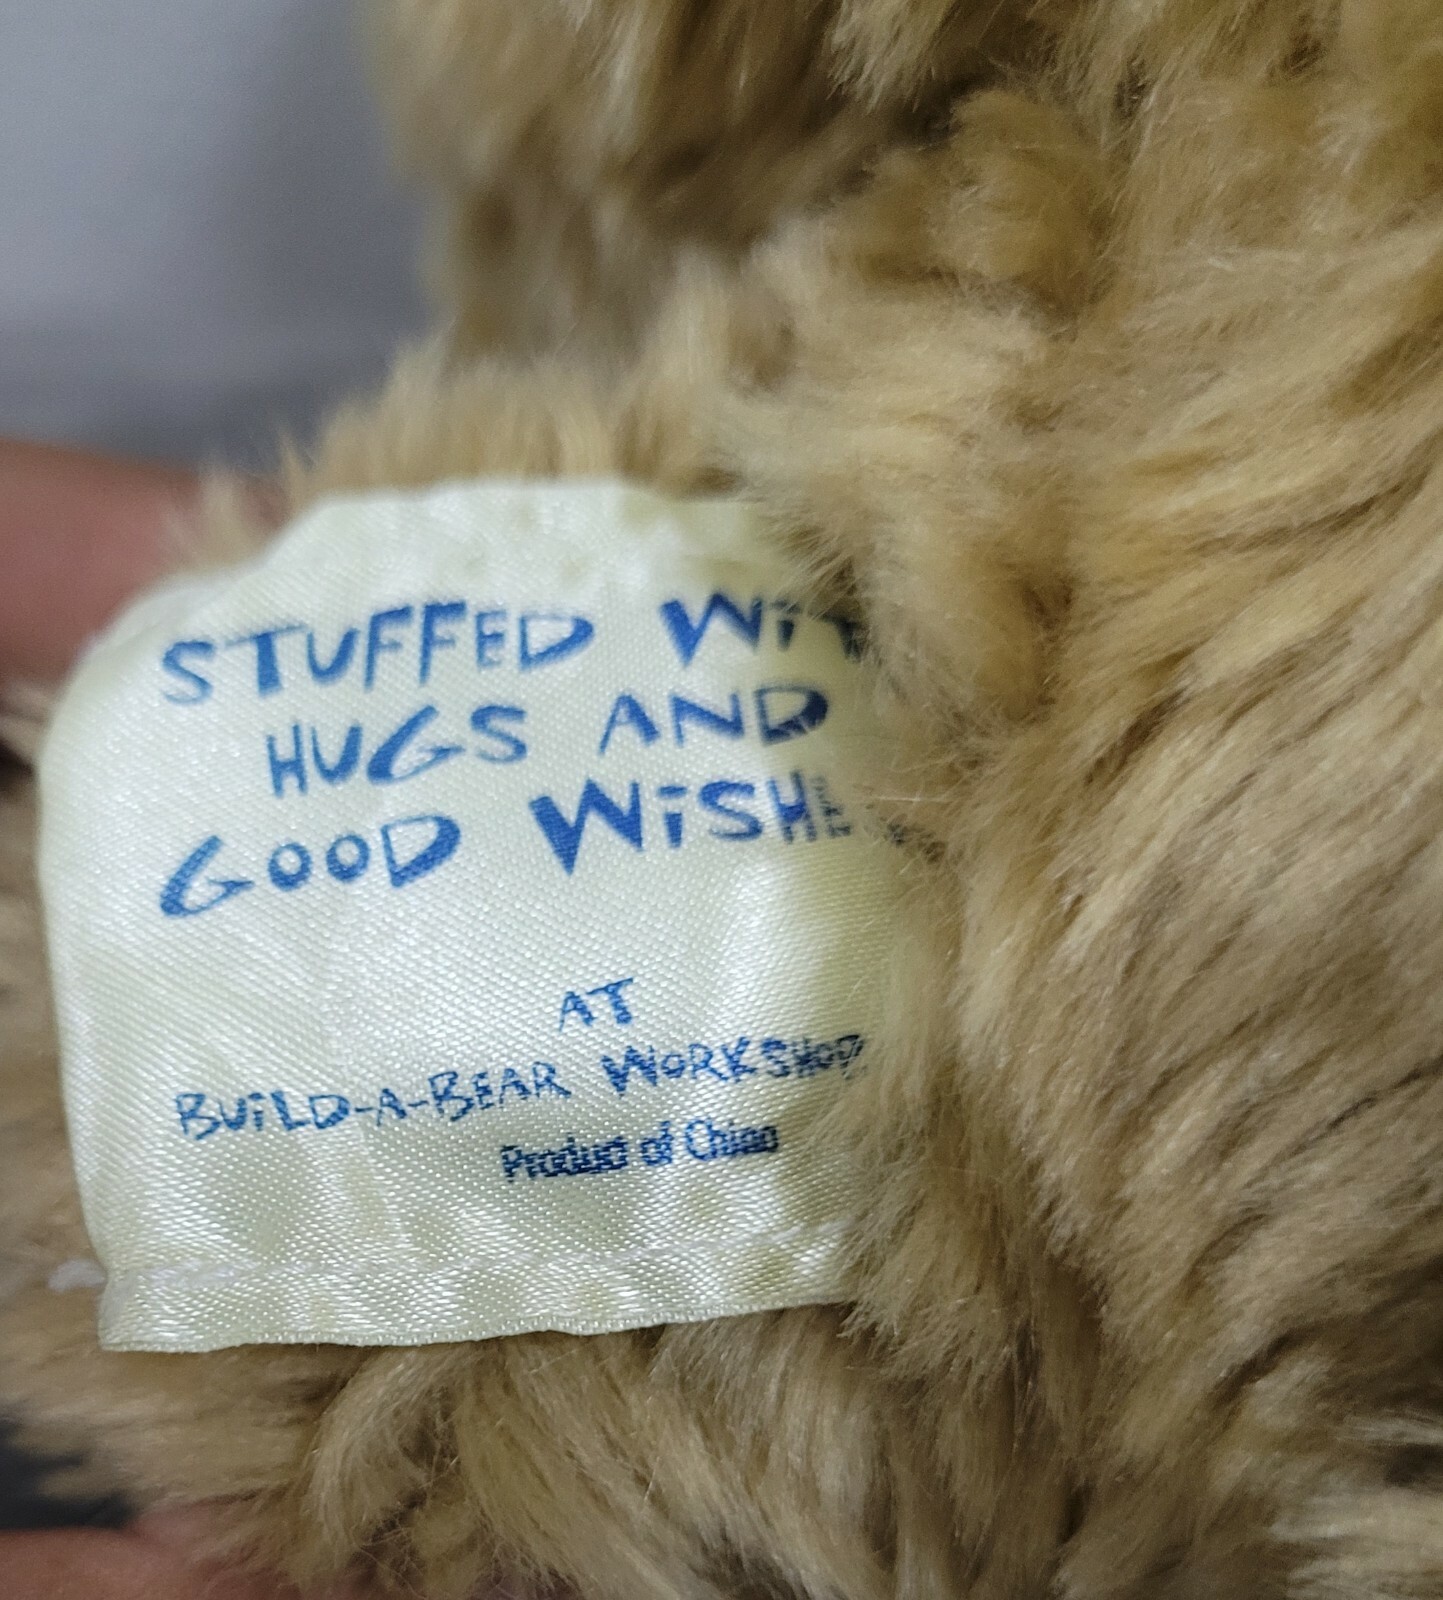 STUFFED WiT
HUGS AND
GOOD WiSHE
AT
BUiLD-A-BEAR WORKSHOP
Product of China